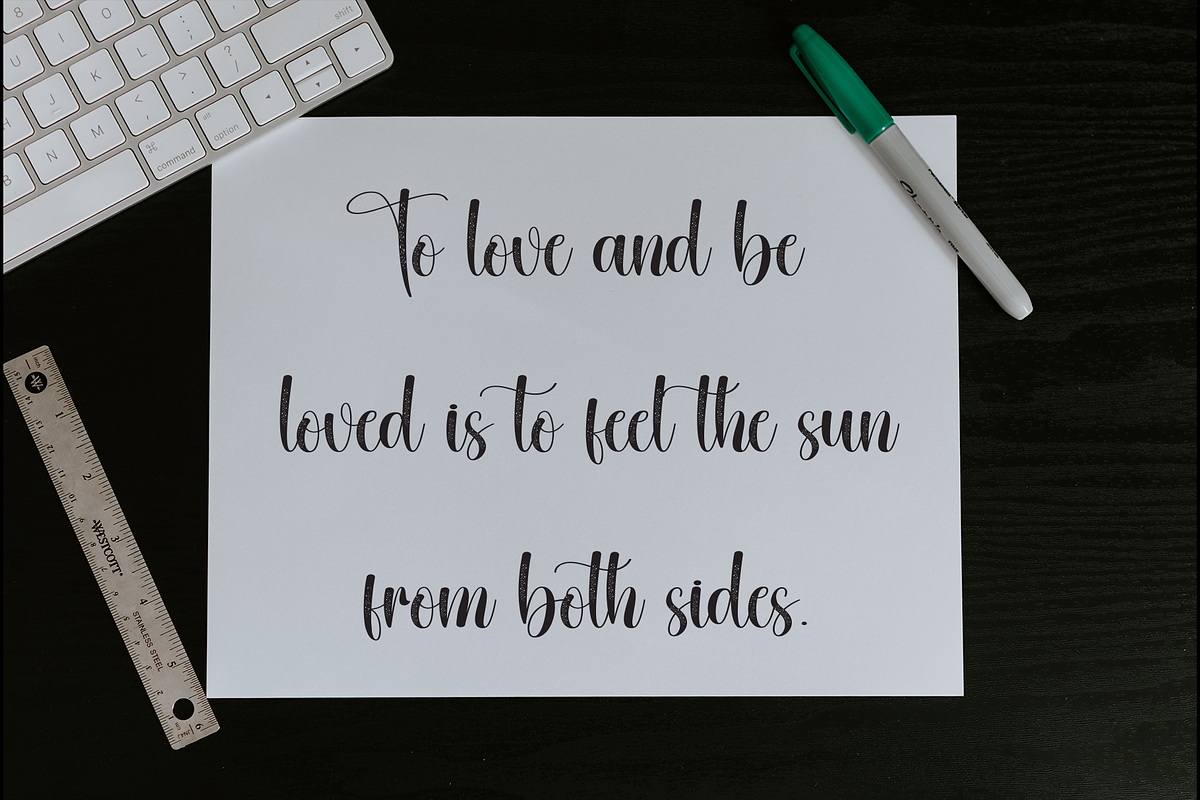 8
I
O
shift
U
I
L
:
;
?
/
J
K
<
,
>
.
H
N
M
⌘
command
alt
option
B
To love and be
loved is to feel the sun
from both sides.
inch
W
1
2
3
4
5
6
WESTCOTT
STAINLESS STEEL